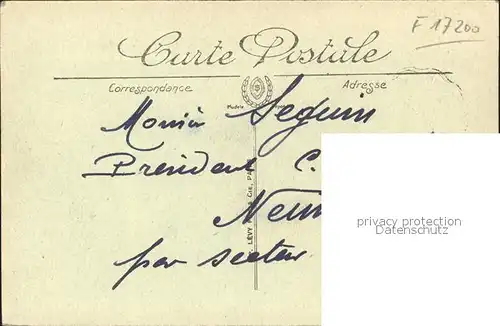 F 17200
Carte Postale
Correspondance Adresse
Seguin
President C.
par secteur
LÉVY
privacy protection
Datenschutz